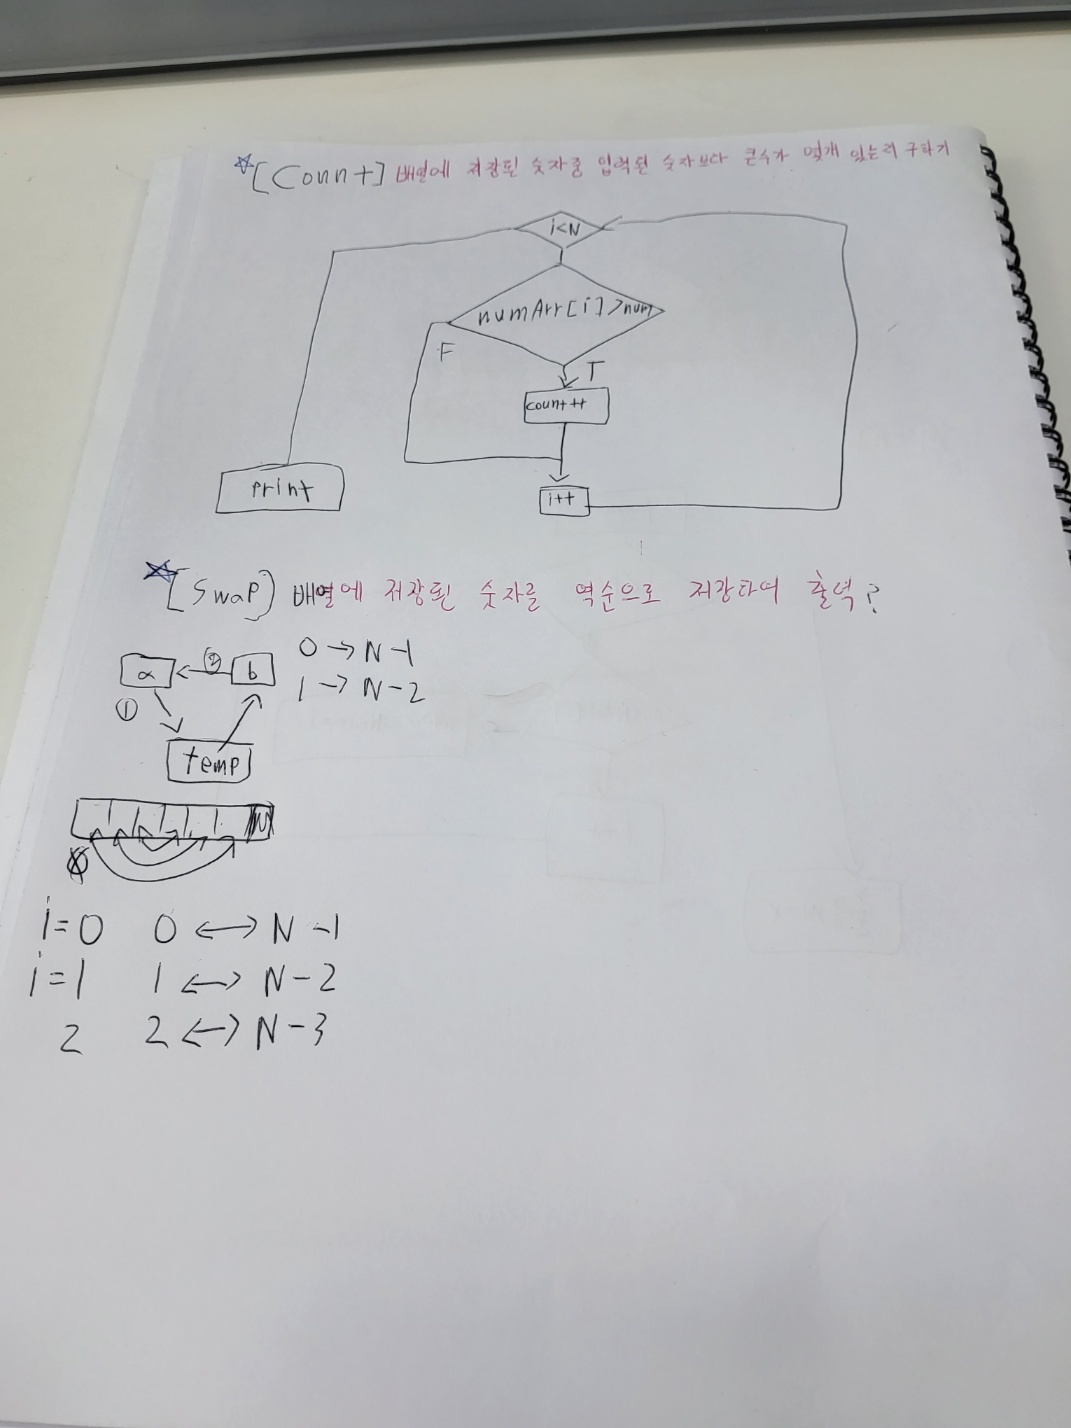 [Count] 배열에 저장된 숫자중 입력된 숫자보다 큰수가 몇개 있는지 구하기
i<N
numArr[i]>num
F
T
count++
print
i++
[Swap] 배열에 저장된 숫자를 역순으로 저장하여 출력?
0 → N-1
a ← ② b
1 → N-2
①
temp
N
i=0 0 ↔ N-1
i=1 1 ↔ N-2
2 2 ↔ N-3